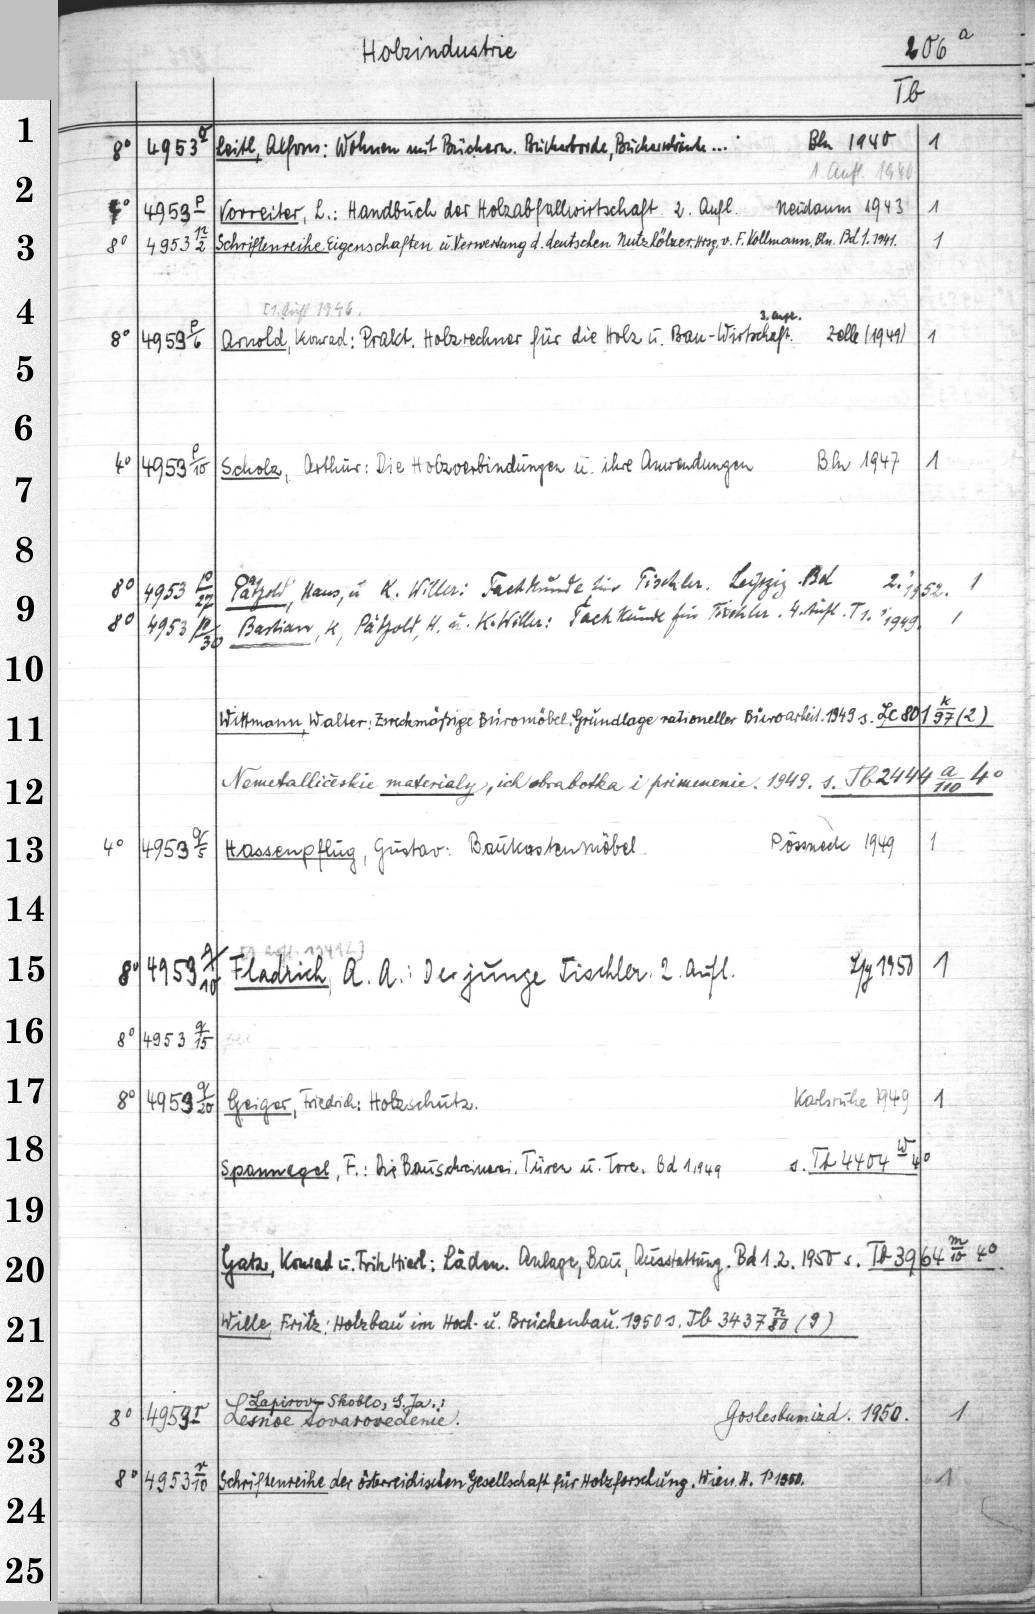 Holzindustrie 206 a
Tb
1
8° 4953 Leitl, Alfons: Wohnen mit Büchern. Bücherborde, Bücherschränke ... Bln 1940 1
1. Aufl. 1940
2
4953 p Vorreiter, L.: Handbuch der Holzabfallwirtschaft 2. Aufl. Neudamm 1943 1
3
8° 4953 n/2 Schriftenreihe Eigenschaften u. Verwertung d. deutschen Nutzhölzer. Hrsg. v. F. Kollmann. Bln. Bd 1. 1941. 1
4
[1. Aufl 1946.
3. Aufl.
8° 4953 p/6 Arnold, Konrad: Prakt. Holzrechner für die Holz u. Bau-Wirtschaft. Celle (1949) 1
5
6
4° 4953 p/10 Scholz, Arthur: Die Holzverbindungen u. ihre Anwendungen Bln 1947 1
7
8
8° 4953 p/27 Pätzold, Hans, u K. Willer: Fachkunde für Tischler. Leipzig. Bd 2. 1952. 1
9
8° 4953 p/30 Bastian, K, Pätzold, H. u. K. Willer: Fachkunde für Tischler. 4. Aufl. T 1. 1949. 1
10
11
Wittmann, Walter: Zweckmäßige Büromöbel. Grundlage rationeller Büroarbeit. 1949 s. Zc 801 k/97 (2)
12
Nemetalličeskie materialy, ich obrabotka i primenenie. 1949. s. Tb 2444 a/110 4°
13
4° 4953 q/5 Hassenpflug, Gustav: Baukastenmöbel. Pössneck 1949 1
14
15
8° 4953 q/10 Fladrich, A. A.: Der junge Tischler. 2. Aufl. Lpzg 1950 1
16
8° 4953 q/15
17
8° 4953 q/20 Geiger, Friedrich: Holzschutz. Karlsruhe 1949 1
18
Spannagel, F.: Die Bauschreinerei. Türen u. Tore. Bd 1. 1949 s. Tb 4404 w 4°
19
20
Gatz, Konrad u. Fritz Hierl: Läden. Anlage, Bau, Ausstattung. Bd 1. 2. 1950 s. Tb 3964 m/10 4°.
21
Wille, Fritz: Holzbau im Hoch- u. Brückenbau. 1950 s. Tb 3437 n/80 (9)
22
Lapirov-Skoblo, S. Ja.:
8° 4953 r Lesnoe tovarovedenie. Goslesbumizd. 1950. 1
23
8° 4953 r/10 Schriftenreihe der österreichischen Gesellschaft für Holzforschung. Wien. H. 1. 1950. 1
24
25